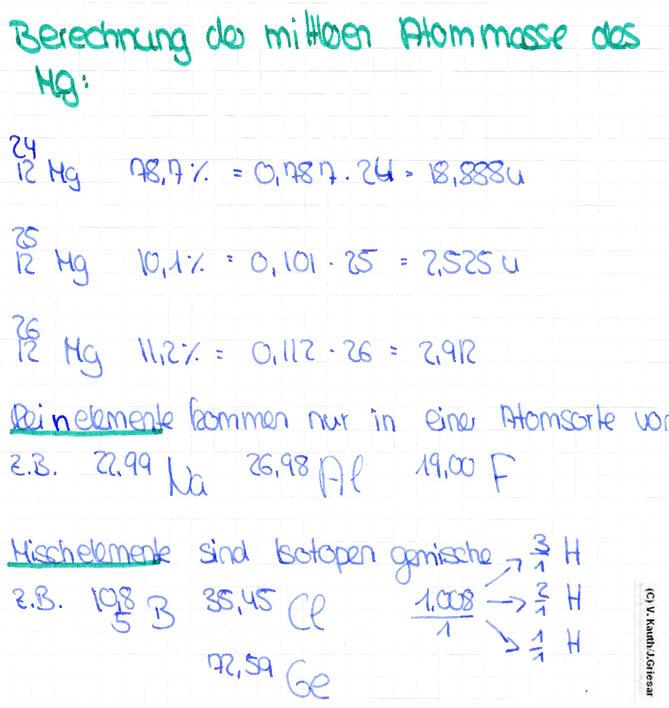 Berechnung der mittleren Atommasse des
Mg:
24
12 Mg 78,7% = 0,787 · 24 = 18,888u
25
12 Mg 10,1% = 0,101 · 25 = 2,525 u
26
12 Mg 11,2% = 0,112 · 26 = 2,912
Reinelemente kommen nur in einer Atomsorte vor
z.B. 22,99 Na 26,98 Al 19,00 F
Mischelemente sind Isotopen gemische → 3/1 H
z.B. 10,8/5 B 35,45 Cl 1.008/1 → 2/1 H
→ 1/1 H
72,59 Ge
(C) V. Kauth/J.Griesar